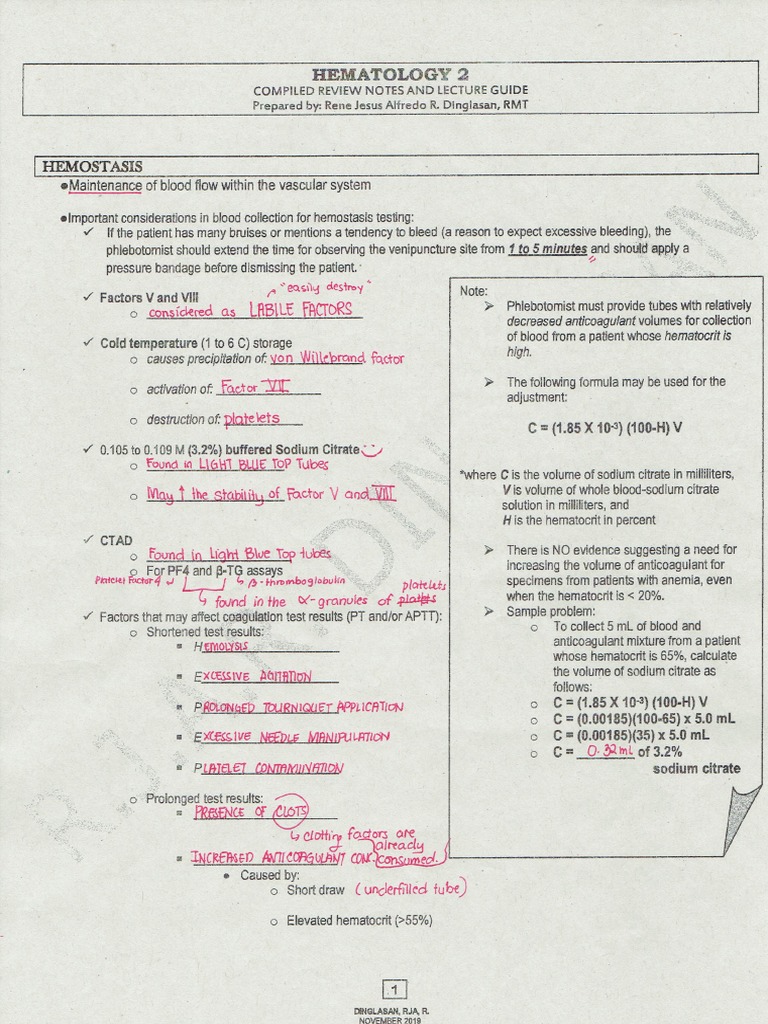 HEMATOLOGY 2
COMPILED REVIEW NOTES AND LECTURE GUIDE
Prepared by: Rene Jesus Alfredo R. Dinglasan, RMT
HEMOSTASIS
●Maintenance of blood flow within the vascular system
●Important considerations in blood collection for hemostasis testing:
✓ If the patient has many bruises or mentions a tendency to bleed (a reason to expect excessive bleeding), the
phlebotomist should extend the time for observing the venipuncture site from 1 to 5 minutes and should apply a
pressure bandage before dismissing the patient.
"easily destroy"
✓ Factors V and VIII
o considered as LABILE FACTORS
✓ Cold temperature (1 to 6 C) storage
o causes precipitation of: von Willebrand factor
o activation of: Factor VII
o destruction of: platelets
✓ 0.105 to 0.109 M (3.2%) buffered Sodium Citrate
o Found in LIGHT BLUE TOP Tubes
o May ↑ the stability of Factor V and VIII
✓ CTAD
o Found in Light Blue Top tubes
o For PF4 and β-TG assays
Platelet Factor 4 ↲ ↳ β-thromboglobulin
platelets
↳ found in the α-granules of
✓ Factors that may affect coagulation test results (PT and/or APTT):
o Shortened test results:
▪ HEMOLYSIS
▪ EXCESSIVE AGITATION
▪ PROLONGED TOURNIQUET APPLICATION
▪ EXCESSIVE NEEDLE MANIPULATION
▪ PLATELET CONTAMINATION
o Prolonged test results:
▪ PRESENCE OF CLOTS
↳ clotting factors are
already
consumed.
▪ INCREASED ANTICOAGULANT CONC.
• Caused by:
o Short draw (underfilled tube)
o Elevated hematocrit (>55%)
Note:
➢ Phlebotomist must provide tubes with relatively
decreased anticoagulant volumes for collection
of blood from a patient whose hematocrit is
high.
➢ The following formula may be used for the
adjustment:
C = (1.85 X 10⁻³) (100-H) V
*where C is the volume of sodium citrate in milliliters,
V is volume of whole blood-sodium citrate
solution in milliliters, and
H is the hematocrit in percent
➢ There is NO evidence suggesting a need for
increasing the volume of anticoagulant for
specimens from patients with anemia, even
when the hematocrit is < 20%.
➢ Sample problem:
o To collect 5 mL of blood and
anticoagulant mixture from a patient
whose hematocrit is 65%, calculate
the volume of sodium citrate as
follows:
o C = (1.85 X 10⁻³) (100-H) V
o C = (0.00185)(100-65) x 5.0 mL
o C = (0.00185)(35) x 5.0 mL
o C = 0.32 ml of 3.2%
sodium citrate
1
DINGLASAN, RJA, R.
NOVEMBER 2019